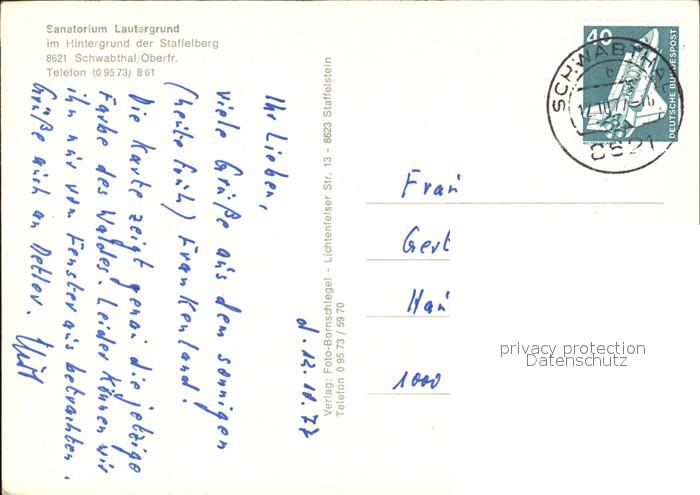 Sanatorium Lautergrund
im Hintergrund der Staffelberg
8621 Schwabthal/Oberfr.
Telefon (0 95 73) 8 61
d. 12.10.77
Ihr Lieben,
viele Grüße aus dem sonnigen
(heute früh) Frankenland!
Die Karte zeigt genau die jetzige
Farbe des Waldes. Leider können wir
ihn nur vom Fenster aus betrachten.
Grüße auch an Detlev.
Verlag: Foto-Bornschlegel - Lichtenfelser Str. 13 - 8623 Staffelstein
Telefon 0 95 73 / 59 70
40
DEUTSCHE BUNDESPOST
SCHWABTHAL
b
8621
Frau
Gert
Hau
1000
privacy protection
Datenschutz